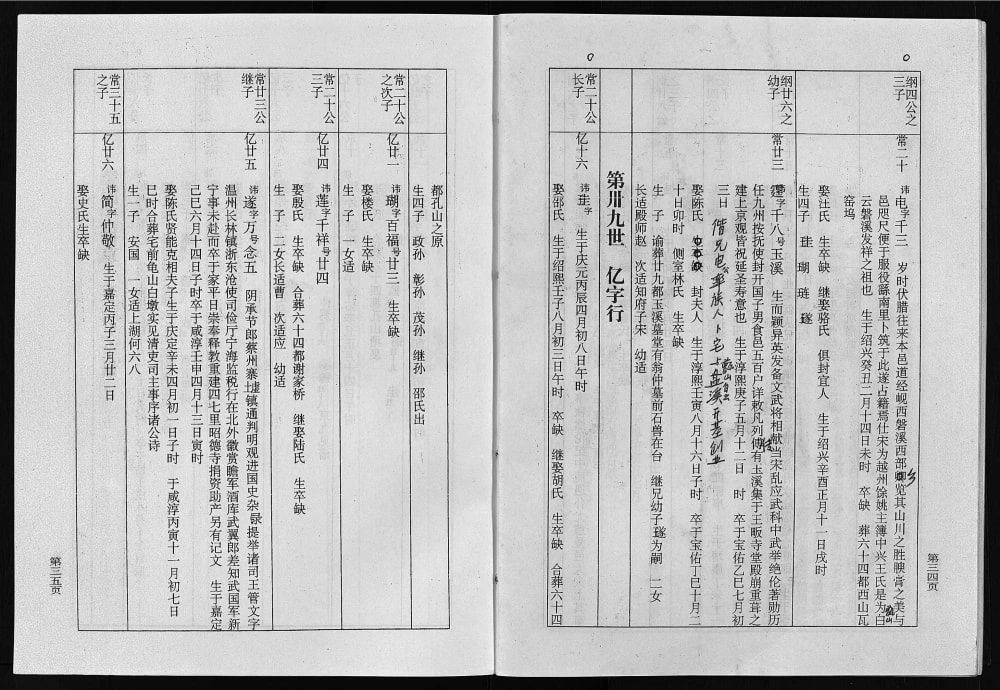 纲四公之
三子
常二十
讳电字千三 岁时伏腊往来本邑道经岘西磐溪西部乡览其山川之胜腴膏之美与
邑咫尺便于服役繇南里卜筑于此遂占籍焉仕宋为越州馀姚主簿中兴王氏是为白
云磐溪发祥之祖也 生于绍兴癸丑二月十四日未时 卒缺 葬六十四都西山瓦
窑坞
娶汪氏 生卒缺 继娶骆氏 俱封宜人 生于绍兴辛酉正月十一日戌时
生四子 珪 瑚 琏 璲
纲廿六之
幼子
常廿三
讳霆字千八号玉溪 生而颖异英发备文武将相献当宋乱应武科中武举绝伦著勋历
任九州按抚使封开国子男食邑五百户详敕凡列傅有玉溪集于王畈寺堂殿崩重葺之
建上京观皆祝延圣寿意也 生于淳熙庚子五月十二日 时 卒于宝佑乙巳七月初
三日 偕兄电公率族人卜宅上盘溪开基创业
娶陈氏 封夫人 生于淳熙壬寅八月十六日子时 卒于宝佑丁巳十月二
十日卯时 侧室林氏 生卒缺
生 子 谕葬廿九都玉溪墓堂有翁仲墓前石兽在台 继兄幼子璲为嗣 二女
长适殿师赵 次适知府子宋 幼适
第卅九世 亿字行
常二十公
长子
亿十六
讳珪字 生于庆元丙辰四月初八日午时
娶邵氏 生于绍熙壬子八月初三日午时 卒缺 继娶胡氏 生卒缺 合葬六十四
第三四页
都孔山之原
生四子 政孙 彰孙 茂孙 继孙 邵氏出
常二十公
之次子
亿廿一
讳瑚字百福号廿三 生卒缺
娶楼氏 生卒缺
生 子 一女适
常二十公
三子
亿廿四
讳莲字千祥号廿四
娶殷氏 生卒缺 合葬六十四都谢家桥 继娶陆氏 生卒缺
生 子 二女长适曹 次适应 幼适
常廿三公
继子
亿廿五
讳遂字万号念五 阴承节郎蔡州寨墟镇通判明观进国史杂录提举诸司王管文字
温州长林镇浙东沧使司俭厅宁海监税行在北外徽赏赡军酒库武翼郎差知武国军新
宁事未赴而卒于家平日崇奉释教重建四七里昭德寺捐资助产另有记文 生于嘉定
己巳六月十四日子时卒于咸淳壬申四月十三日寅时
娶陈氏贤能克相夫子生于庆定辛未四月初一日子时 于咸淳丙寅十一月初七日
巳时合葬宅前龟山白墩实见清吏司主事序诸公诗
生一子 安国 一女适上湖何六八
常三十五
之子
亿廿六
讳简字仲敬 生于嘉定丙子三月廿二日
娶史氏生卒缺
第三五页